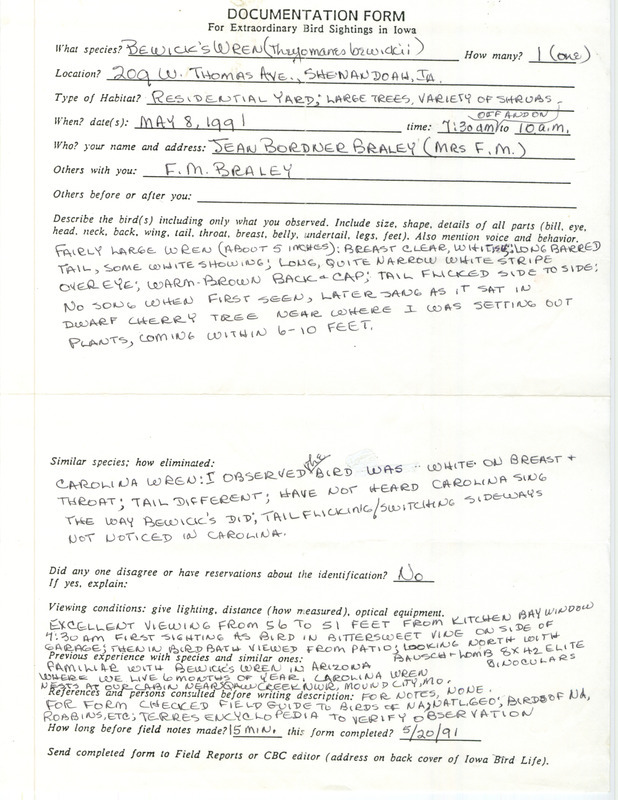 DOCUMENTATION FORM
For Extraordinary Bird Sightings in Iowa
What species? BEWICK'S WREN (Thryomanes bewickii) How many? 1 (one)
Location? 209 W. THOMAS AVE., SHENANDOAH, IA.
Type of Habitat? RESIDENTIAL YARD; LARGE TREES, VARIETY OF SHRUBS.
OFF AND ON
When? date(s): MAY 8, 1991 time: 7:30 am to 10 a.m.
Who? your name and address: JEAN BORDNER BRALEY (MRS F.M.)
Others with you: F.M. BRALEY
Others before or after you:
Describe the bird(s) including only what you observed. Include size, shape, details of all parts (bill, eye,
head, neck, back, wing, tail, throat, breast, belly, undertail, legs, feet). Also mention voice and behavior.
FAIRLY LARGE WREN (ABOUT 5 INCHES); BREAST CLEAR, WHITISH; LONG BARRED
TAIL, SOME WHITE SHOWING; LONG, QUITE NARROW WHITE STRIPE
OVER EYE; WARM-BROWN BACK + CAP; TAIL FLICKED SIDE TO SIDE;
NO SONG WHEN FIRST SEEN, LATER SANG AS IT SAT IN
DWARF CHERRY TREE NEAR WHERE I WAS SETTING OUT
PLANTS, COMING WITHIN 6-10 FEET.
Similar species; how eliminated:
CAROLINA WREN: I OBSERVED the BIRD WAS WHITE ON BREAST +
THROAT; TAIL DIFFERENT; HAVE NOT HEARD CAROLINA SING
THE WAY BEWICK'S DID; TAIL FLICKING/SWITCHING SIDEWAYS
NOT NOTICED IN CAROLINA.
Did any one disagree or have reservations about the identification? No
If yes, explain:
Viewing conditions: give lighting, distance (how measured), optical equipment.
EXCELLENT VIEWING FROM 56 TO 51 FEET FROM KITCHEN BAY WINDOW
7:30 AM FIRST SIGHTING AS BIRD IN BITTERSWEET VINE ON SIDE OF
GARAGE; THEN IN BIRD BATH VIEWED FROM PATIO; LOOKING NORTH WITH
BAUSCH + LOMB 8X42 ELITE
BINOCULARS
Previous experience with species and similar ones:
FAMILIAR WITH BEWICK'S WREN IN ARIZONA
WHERE WE LIVE 6 MONTHS OF YEAR. CAROLINA WREN
NESTS AT OUR CABIN NEAR SQUAW CREEK NWR, MOUND CITY, MO.
References and persons consulted before writing description: FOR NOTES, NONE.
FOR FORM CHECKED FIELD GUIDE TO BIRDS OF NA, NATL. GEO; BIRDS OF NA,
ROBBINS, ETC; TERRES ENCYCLOPEDIA TO VERIFY OBSERVATION
How long before field notes made? 15 MIN. this form completed? 5/20/91
Send completed form to Field Reports or CBC editor (address on back cover of Iowa Bird Life).